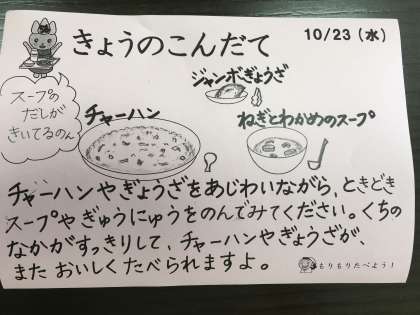 きょうのこんだて
10/23（水）
スープの
だしが
きいてるのん
ジャンボぎょうざ
チャーハン
ねぎとわかめのスープ
チャーハンやぎょうざをあじわいながら、ときどき
スープやぎゅうにゅうをのんでみてください。くちの
なかがすっきりして、チャーハンやぎょうざが、
また おいしくたべられますよ。
もりもりたべよう！